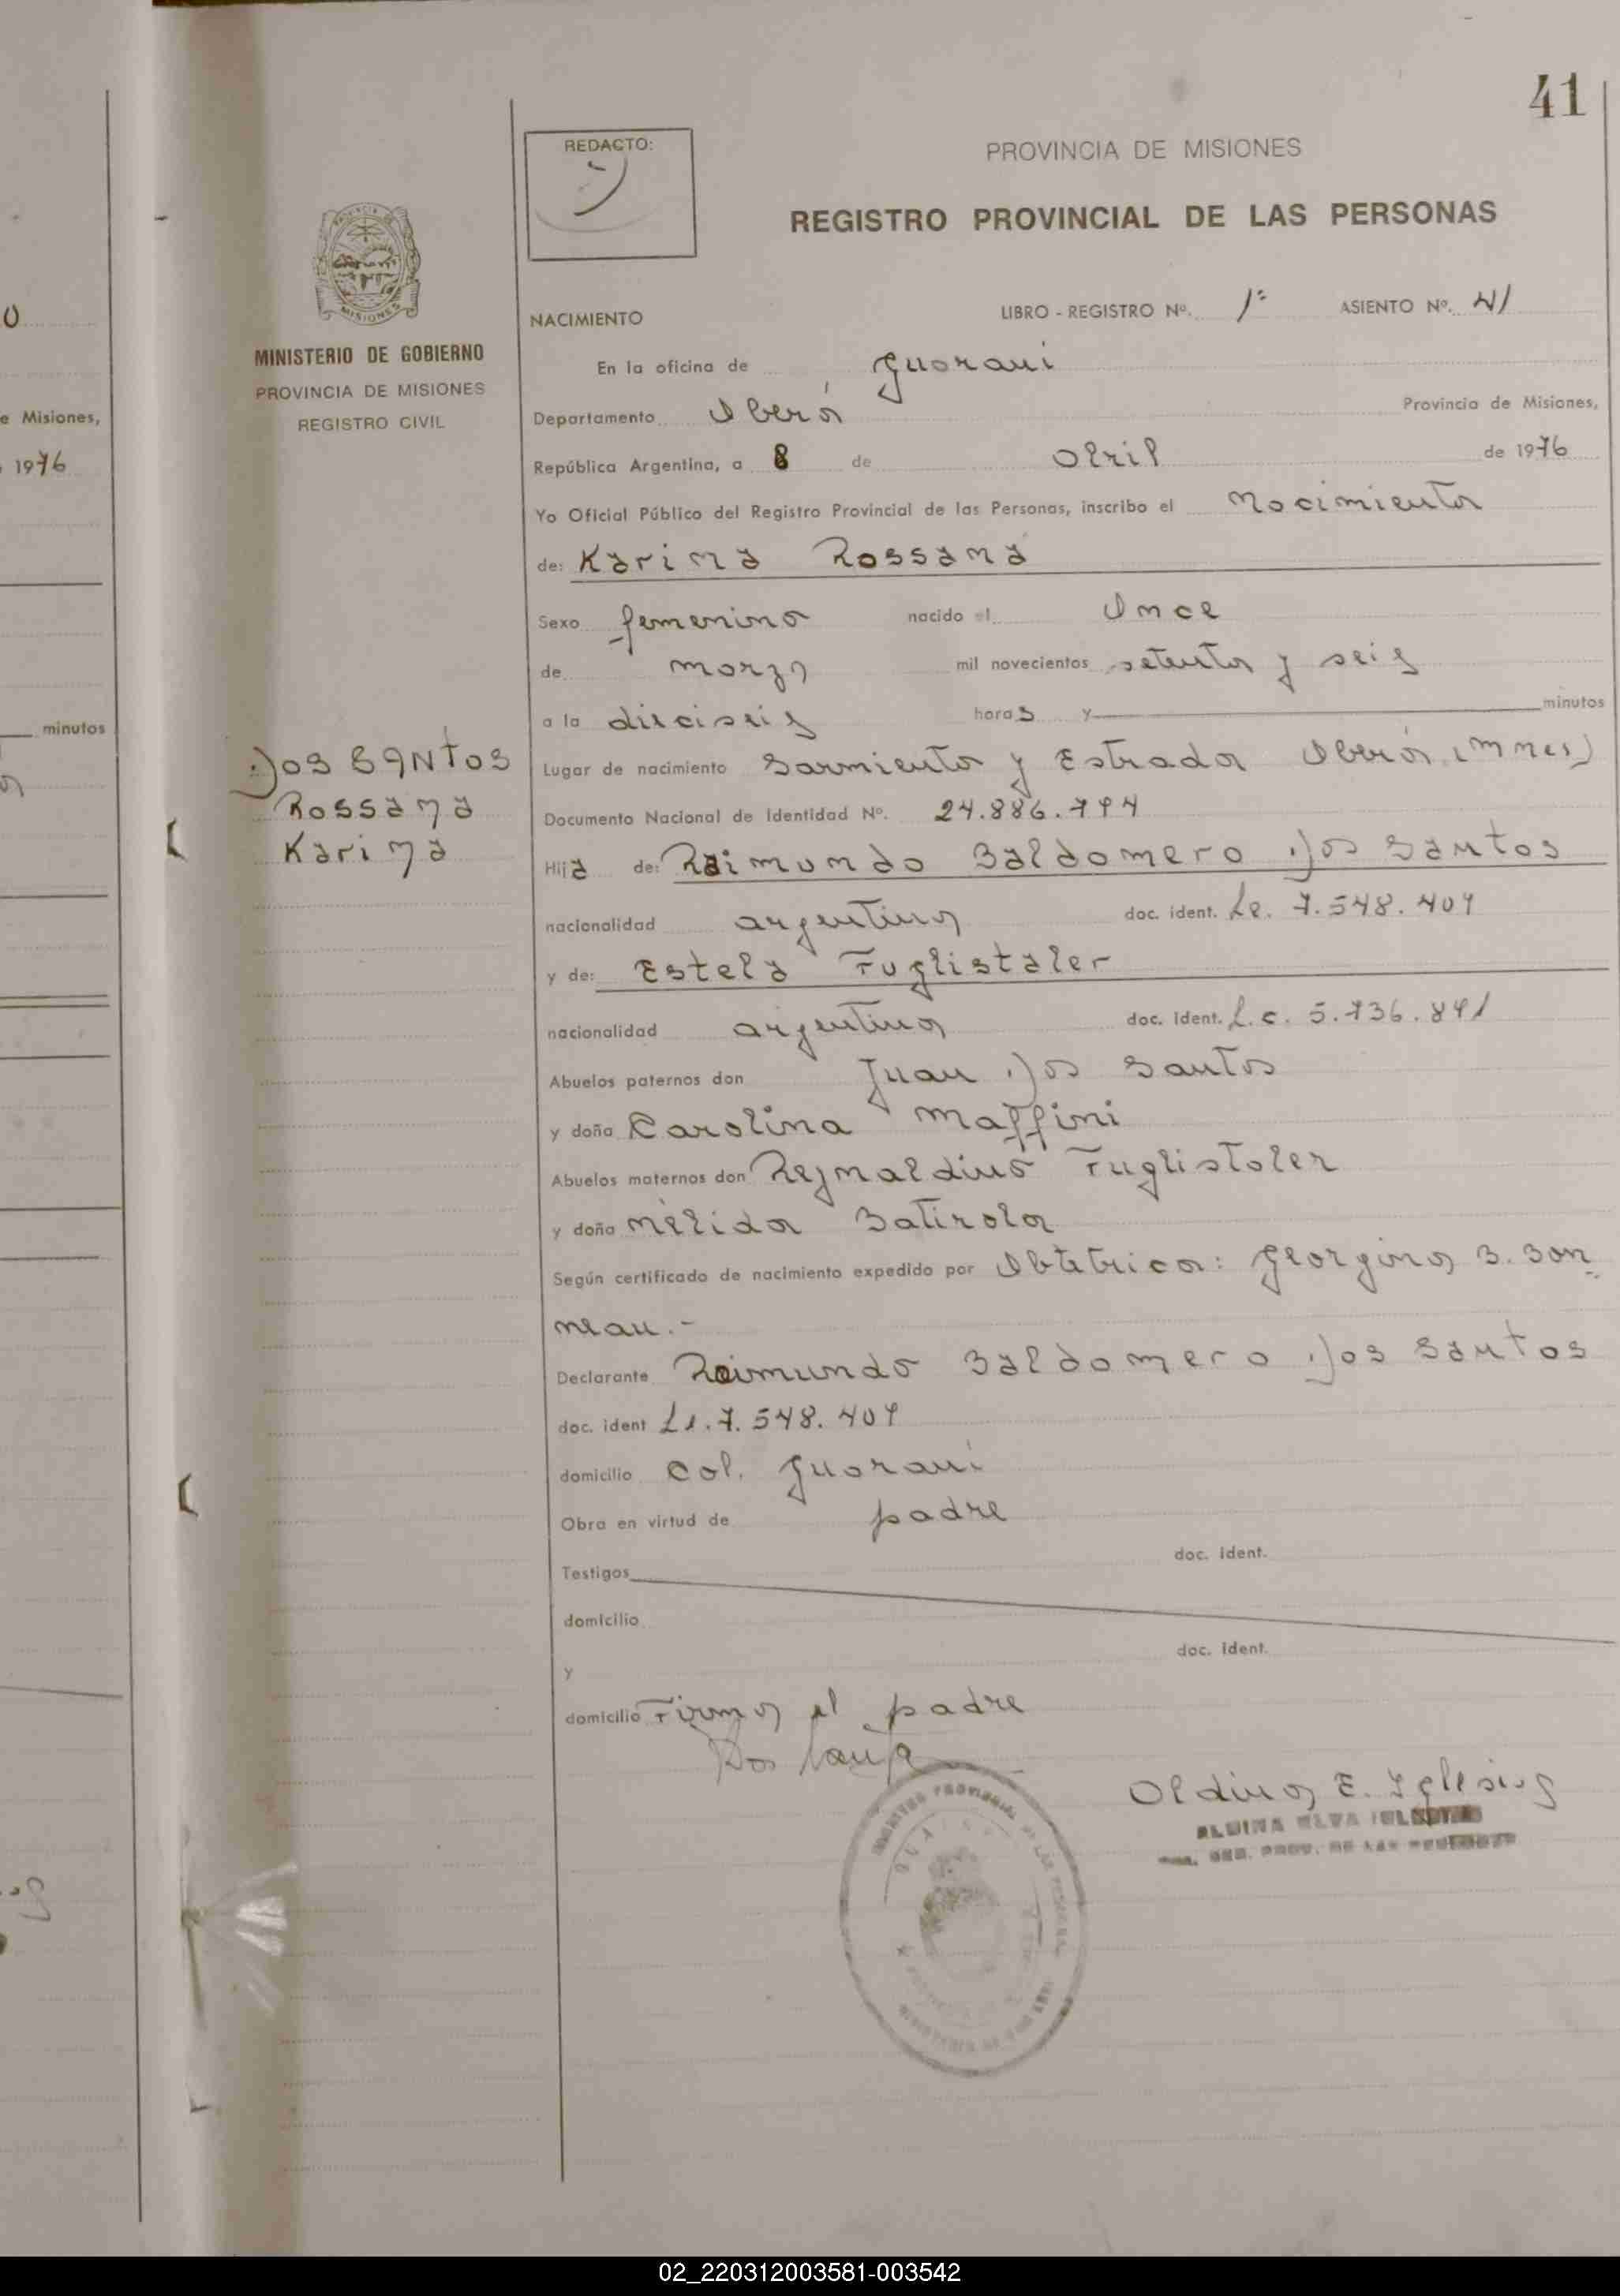 41
REDACTO:
PROVINCIA DE MISIONES
REGISTRO PROVINCIAL DE LAS PERSONAS
NACIMIENTO
LIBRO - REGISTRO Nº. 1º ASIENTO Nº. 41
MINISTERIO DE GOBIERNO
PROVINCIA DE MISIONES
REGISTRO CIVIL
En la oficina de Guarani
Departamento Oberá Provincia de Misiones,
República Argentina, a 8 de Abril de 1976
Yo Oficial Público del Registro Provincial de las Personas, inscribo el Nacimiento
de: Karina Rossana
Sexo femenino nacido el Once
de marzo mil novecientos setenta y seis
a la dieciseis horas y minutos
Dos Santos
Rossana
Karina
Lugar de nacimiento Sarmiento y Estrada Oberá (Mnes)
Documento Nacional de Identidad Nº. 24.886.794
Hija de: Raimundo Baldomero Dos Santos
nacionalidad argentina doc. ident. Le. 7.548.409
y de: Estela Fuglistaler
nacionalidad argentina doc. ident. L.c. 5.736.891
Abuelos paternos don Juan Dos Santos
y doña Carolina Maffini
Abuelos maternos don Reynaldino Fuglistaler
y doña Mélida Batirola
Según certificado de nacimiento expedido por Obtetrica: Georgina B. Bon
neau.-
Declarante Raimundo Baldomero Dos Santos
doc. ident Le. 7.548.409
domicilio Col. Guarani
Obra en virtud de padre
doc. ident.
Testigos
domicilio
doc. ident.
y
domicilio Firma el padre
Dos Santos
Aldina E. Iglesias
e Misiones,
1976
minutos
MISIONES
02_220312003581-003542